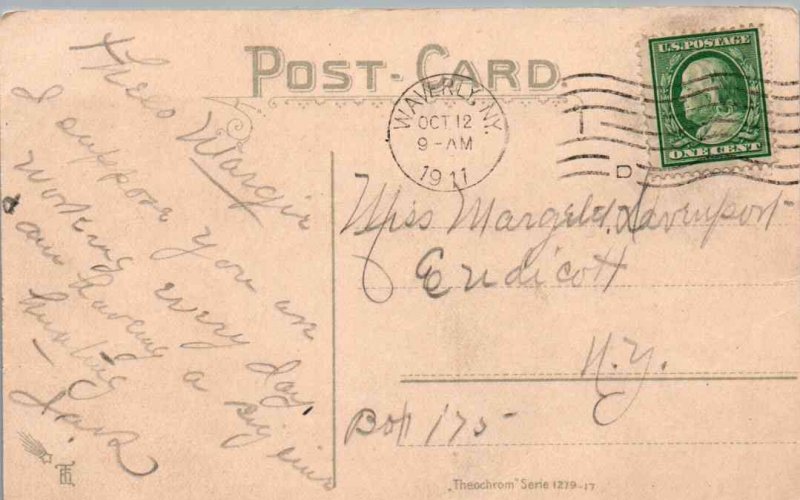 POST-CARD
WAVERLY, N.Y.
OCT 12
9-AM
1911
D
U.S. POSTAGE
ONE CENT
Hello Margie
I suppose you are
working every day.
am having a big time
hunting
Miss Davenport
Endicott
N.Y.
Box 175
„Theochrom" Serie 1279-17